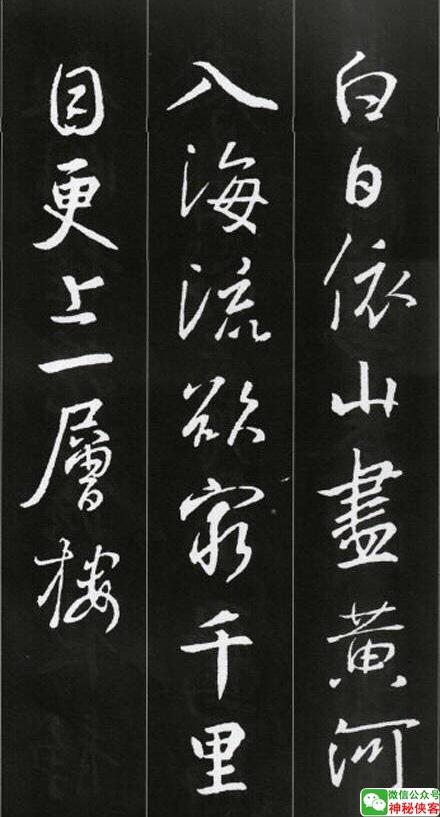 白日依山盡黄河
入海流欲窮千里
目更上一層樓
微信公众号
神秘侠客